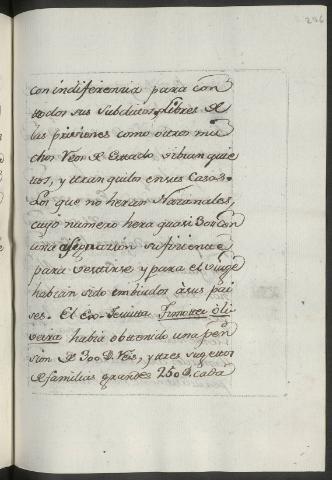 236
con indiferencia para con
todos sus Subditos. Libres de
las prisiones como otros mu
chos Reos de Estado vibian quie
tos, y tranquilos en sus Casas.
Los que no heran Nazionales,
cuyo numero hera quasi 300 con
una asignazion sufiziente
para vestirse y para el viage
habian sido embiados a sus pai
ses. El Exo-Jesuita Timoteo Oli
veira habia obtenido una pen
sion de 300 D. Reis, y tres sugetos
de familias grandes 250 D. cada